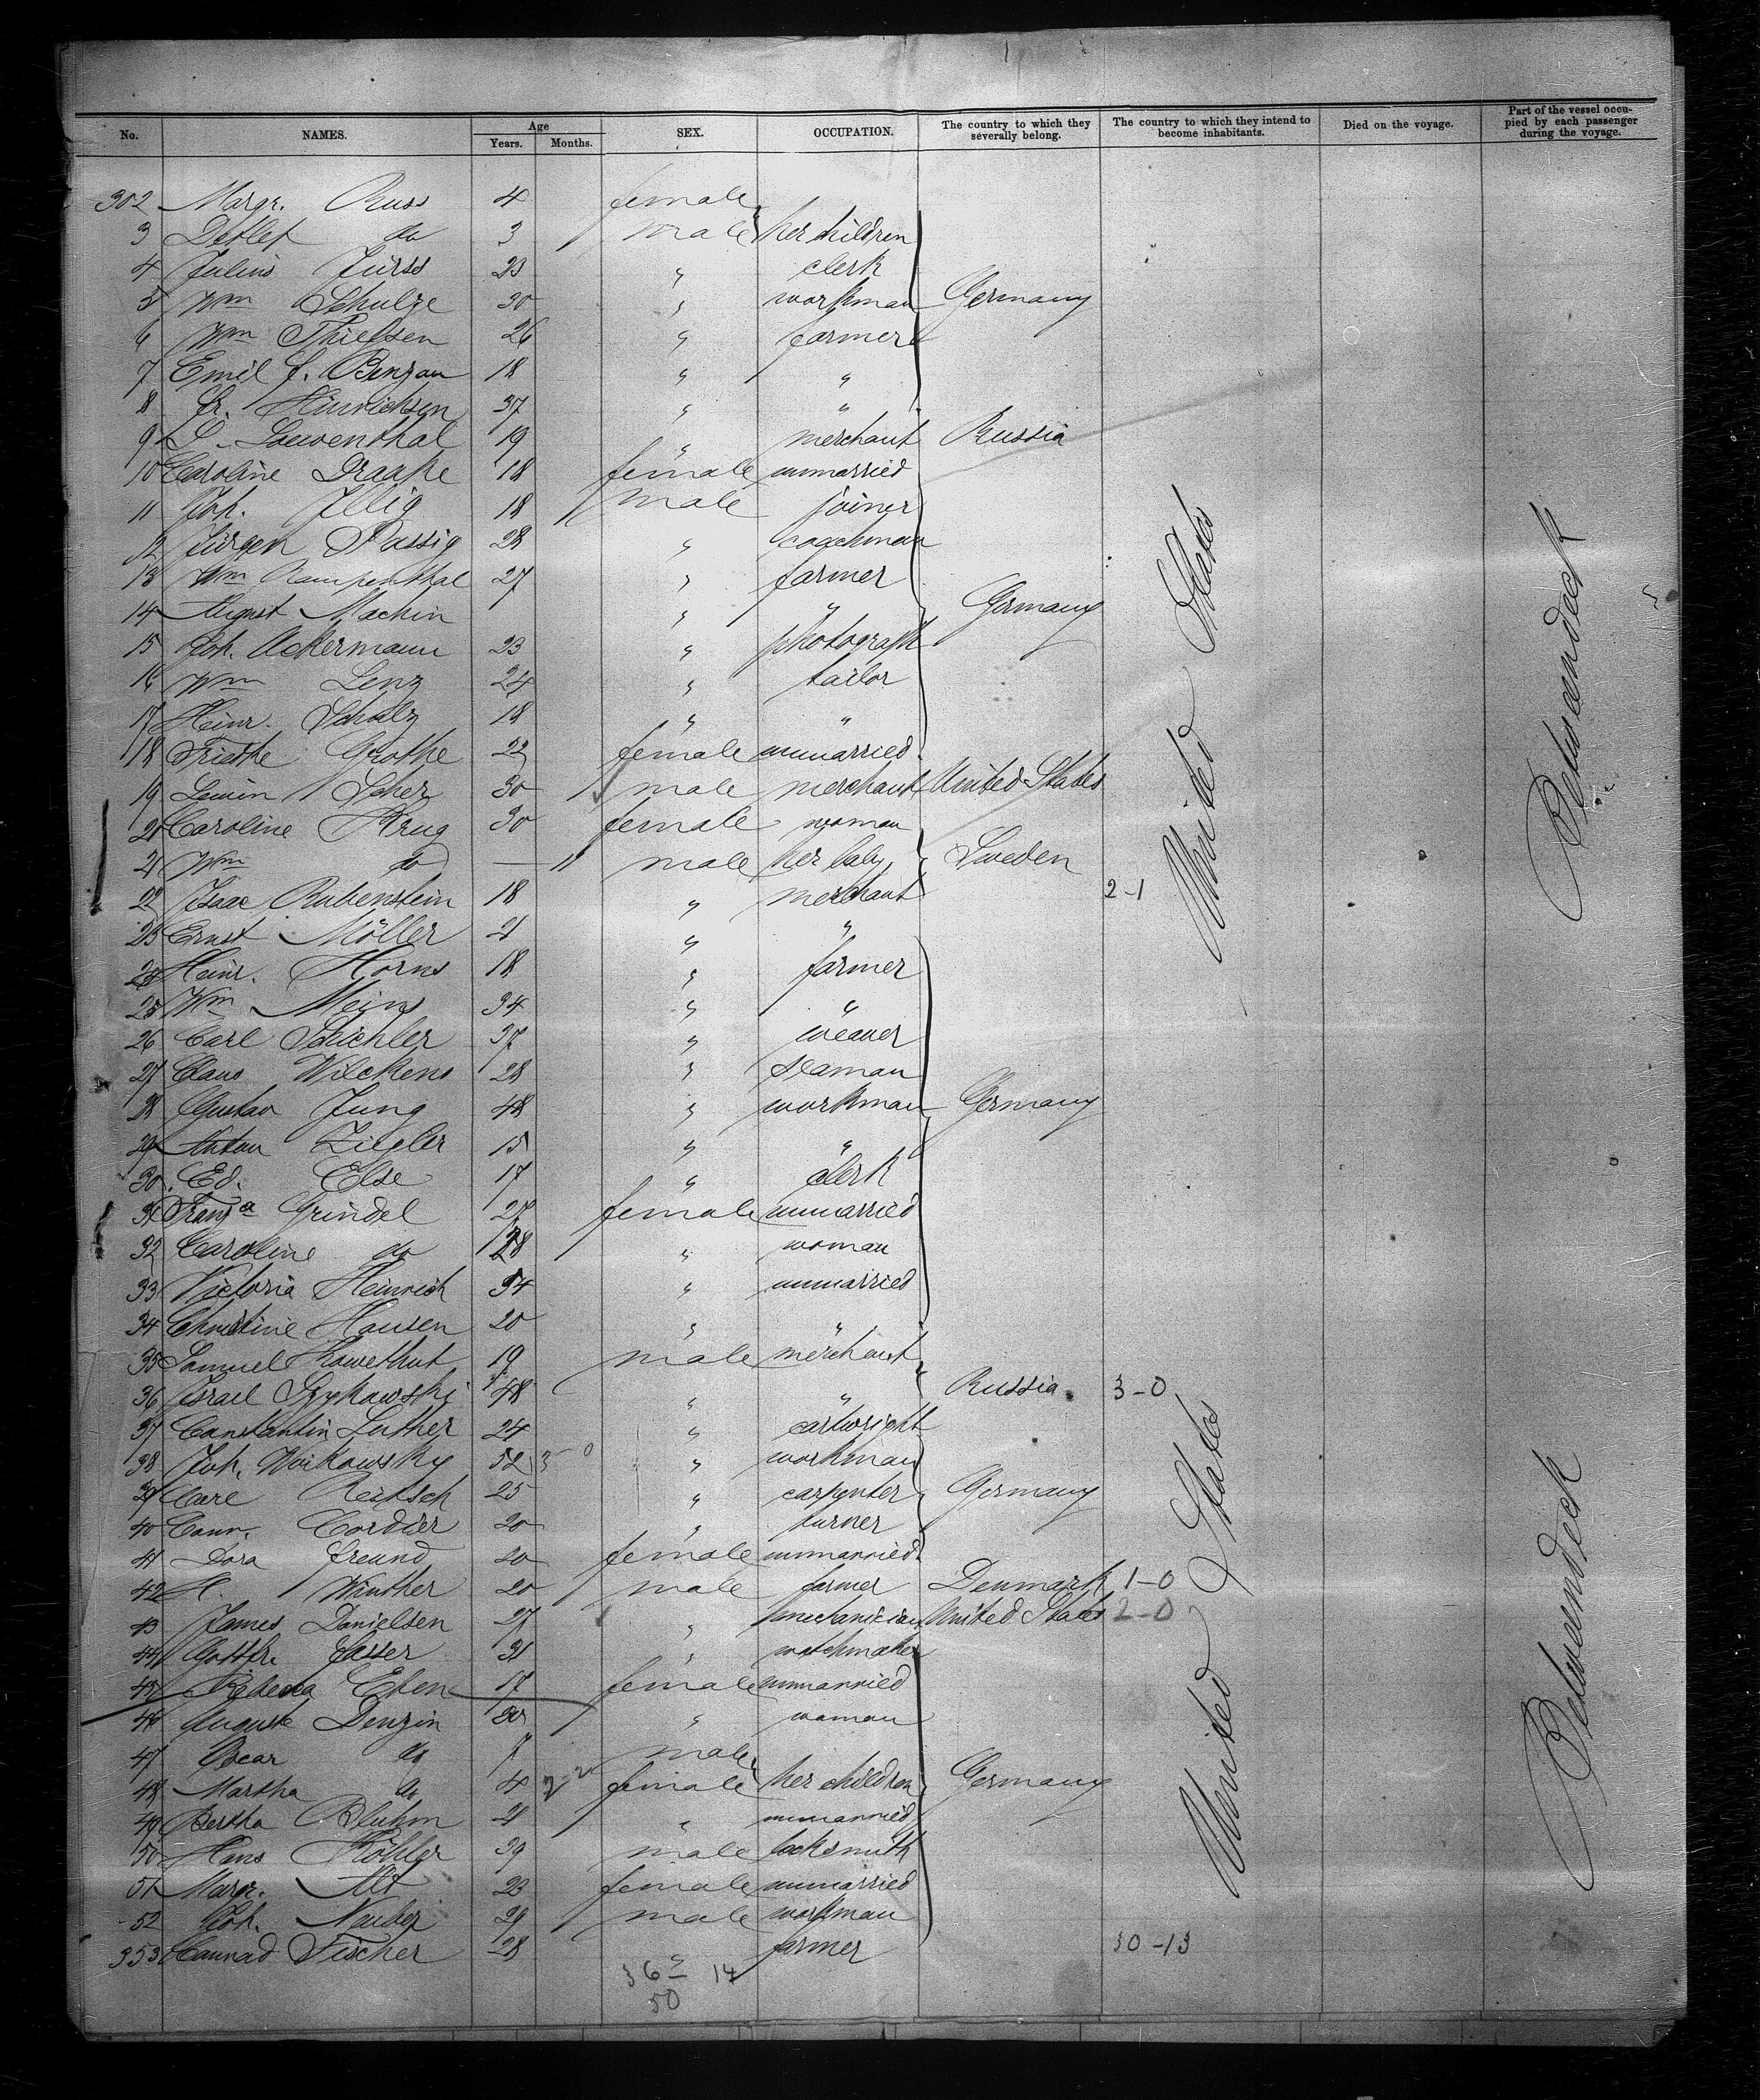 No. NAMES. Age Years. Months. SEX. OCCUPATION. The country to which they severally belong. The country to which they intend to become inhabitants. Died on the voyage. Part of the vessel occupied by each passenger during the voyage.
302 Margr. Russ 4 female
3 Detlef do 3 male her children
4 Julius Jürss 23 " clerk
5 Wm Schulze 30 " workman Germany
6 Wm Thielsen 26 " farmer
7 Emil f. Benzon 18 " "
8 Fr. Hinrichsen 37 " "
9 Loewenthal 19 " merchant Russia
10 Caroline Draake 18 female unmarried
11 Joh. Illig 18 male joiner
12 Jürgen Passig 28 " coachman
13 Wm Rampenthal 27 " farmer
14 August Machin " " Germany
15 Joh. Ackermann 23 " photograph
16 Wm Lenz 24 " tailor
17 Heinr. Schulz 18 " "
18 Friedke Grothe 22 female unmarried
19 Lewin Scher 30 male merchant United States
20 Caroline Krug 30 female woman
21 Wm do — 11 male her baby Sweden
22 Isaac Rubenstein 18 " merchant 2-1
23 Ernst Möller 21 " "
24 Heinr. Horns 18 " farmer
25 Wm Meins 34 " "
26 Carl Schichler 37 " weaver
27 Claus Wilckens 28 " seaman
28 Gustav Jung 48 " workman Germany
29 Anton Ziegler 15 " "
30 Ed. Else 17 " clerk
31 Franza Grindel 27 female unmarried
32 Caroline do 28 " woman
33 Victoria Heinrich 34 " unmarried
34 Christine Hansen 20 " "
35 Samuel 19 male merchant
36 Israel 48 " " Russia 3-0
37 Constantin Luther 24 " cartwright
38 Joh. Workowsky 52 3-0 " workman
39 Carl Reitsch 25 " carpenter Germany
40 Conr. Cordier 20 " turner
41 Dora Freund 20 female unmarried
42 H. Winther 20 male farmer Denmark 1-0
43 James Danielsen 27 " mechanician United States 2-0
44 Gottfr. Fasser 31 " watchmaker
45 Rebecca Eben 17 female unmarried
46 Auguste Denzin 30 " woman
47 Oscar do 7 male
48 Martha do 4 2-2 female her children Germany
49 Bertha Bluhm 21 " unmarried
50 Hans Köhler 39 male locksmith
51 Margr. Alt 23 female unmarried
52 Joh. 29 male workman
353 Conrad Fischer 28 " farmer 30-13
36 14
50
United States
United States
Betweendeck
Betweendeck